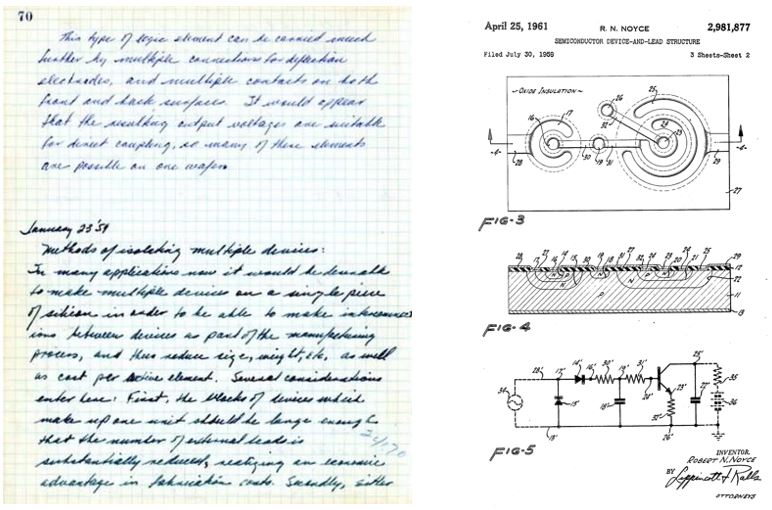 70
This type of logic element can be carried much
further by multiple connections for deflection
electrodes, and multiple contacts on both
front and back surfaces. It would appear
that the resulting output voltages are suitable
for direct coupling, so many of these elements
are possible on one wafer.
January 23 '59
Methods of isolating multiple devices:
In many applications now it would be desirable
to make multiple devices on a single piece
of silicon in order to be able to make interconnect
ions between devices as part of the manufacturing
process, and thus reduce size, weight, etc. as well
as cost per active element. Several considerations
enter here: First, the blocks of devices which
make up one unit should be large enough
that the number of external leads is
substantially reduced, realizing an economic
advantage in fabrication costs. Secondly, either
April 25, 1961
R. N. NOYCE
2,981,877
SEMICONDUCTOR DEVICE-AND-LEAD STRUCTURE
Filed July 30, 1959
3 Sheets-Sheet 2
~OXIDE INSULATION~
26
25
16
17
32
24
23
-4-
-4-
28
30
19
31
29
27
FIG-3
N
P
N
P
12
22
11
13
FIG-4
28'
17'
14'
16'
30'
19'
31'
25'
34
15'
18'
24'
23'
32'
22'
35
36
18'
26'
FIG-5
INVENTOR.
ROBERT N. NOYCE
BY
Lippincott & Ralls
ATTORNEYS